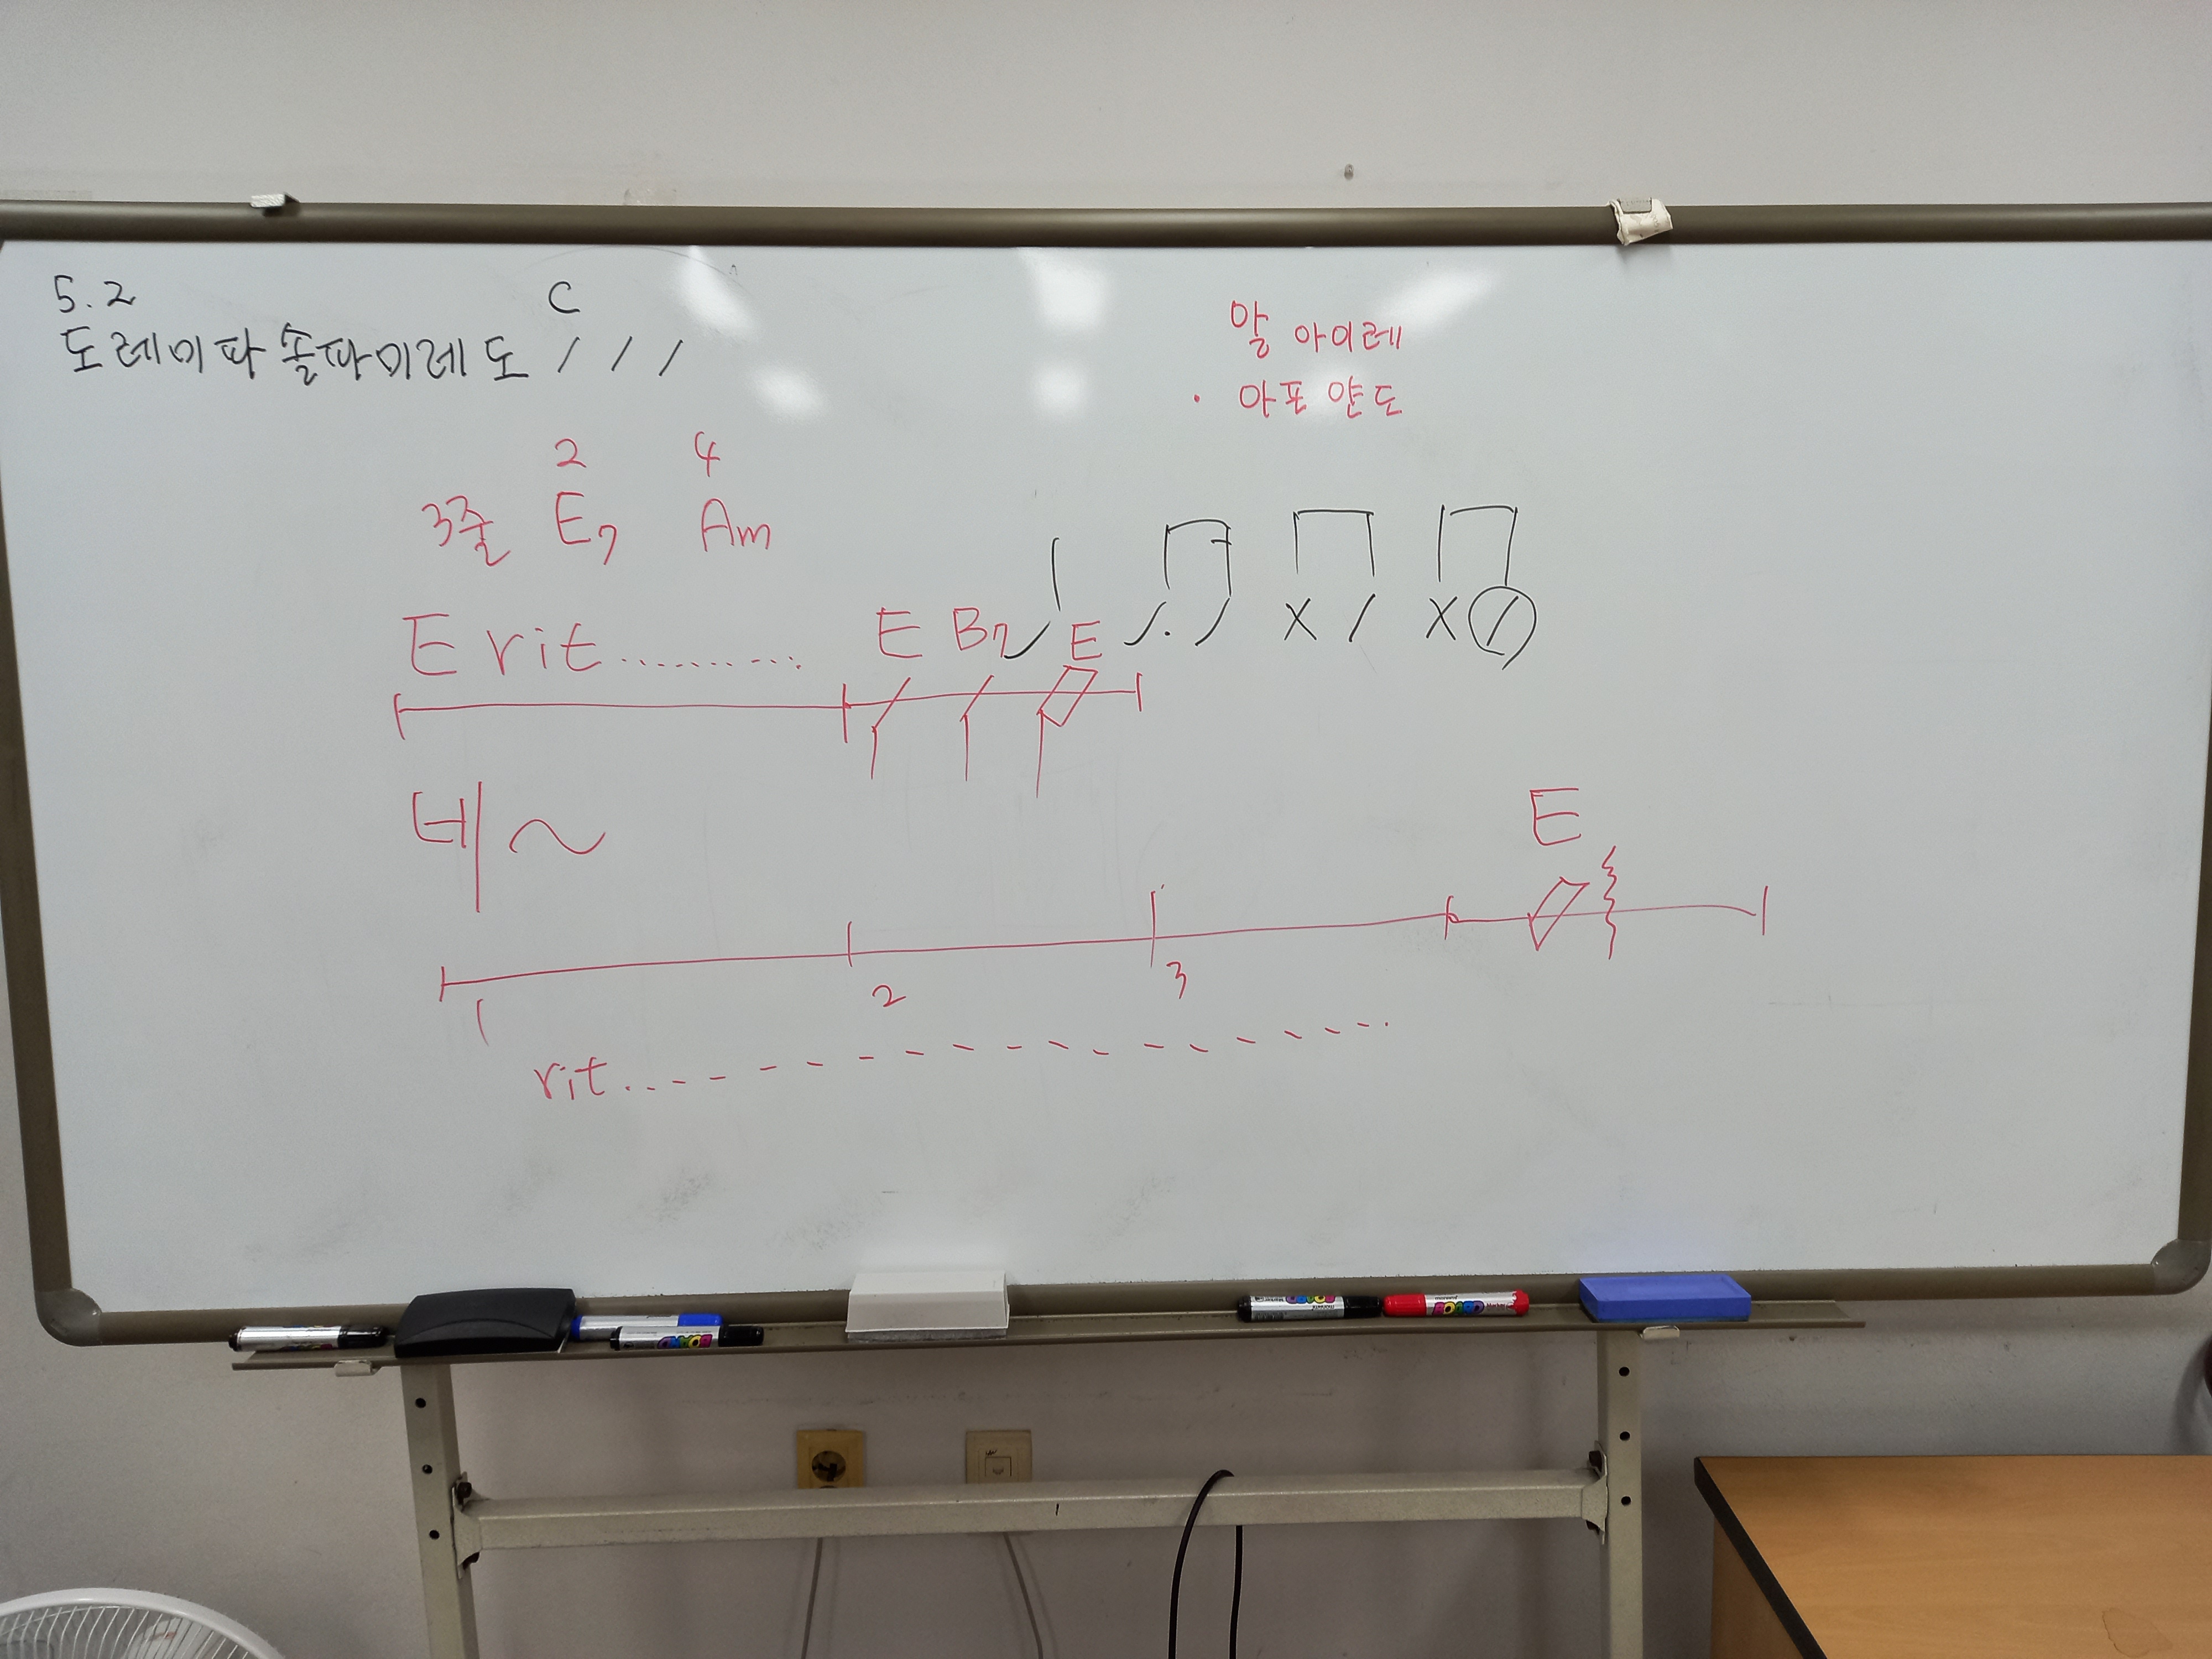 5.2
C
도레미파솔파미레도 / / /
알 아이레
· 아포얀도
2 4
3줄 E7 Am
E rit..........
E B7 E
X / X /
데~
E
1 2 3
rit...- - - - - - - - - - - - - - -
BOARD
BOARD
BOARD Marker